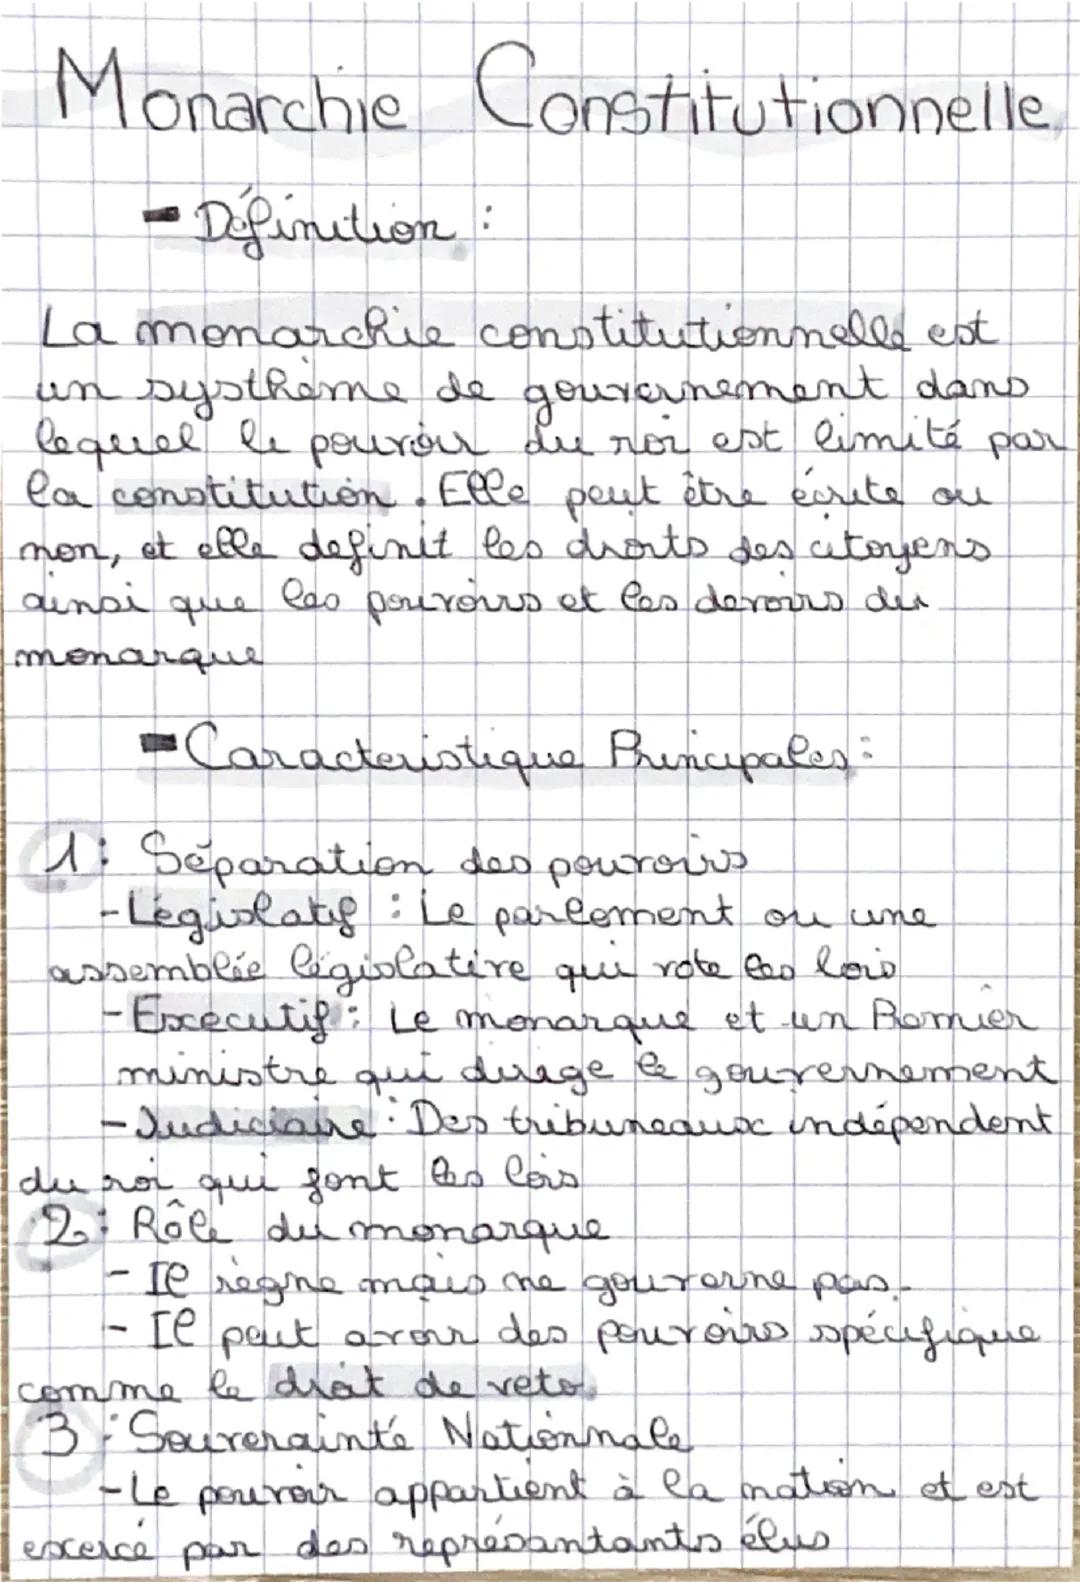 Monarchie Constitutionnelle
- Définition :
La monarchie constitutionnelle est
un systhème de gouvernement dans
lequel le pouvoir du roi est limité par
la constitution. Elle peut être écrite ou
non, et elle definit les droits des citoyens
ainsi que les pouvoirs et les devoirs du
monarque
- Caracteristique Principales :
1 : Séparation des pouvoirs
- Législatif : Le parlement ou une
assemblée législative qui vote les lois
- Executif : Le monarque et un Premier
ministre qui dirige le gouvernement
- Judiciaire : Des tribuneaux indépendent
du roi qui font les lois
2 : Rôle du monarque
- Il règne mais ne gouverne pas.
- Il peut avoir des pouvoirs spécifique
comme le droit de veto.
3 : Souverainté Nationnale
- Le pouvoir appartient à la nation et est
excercé par des représantants élus